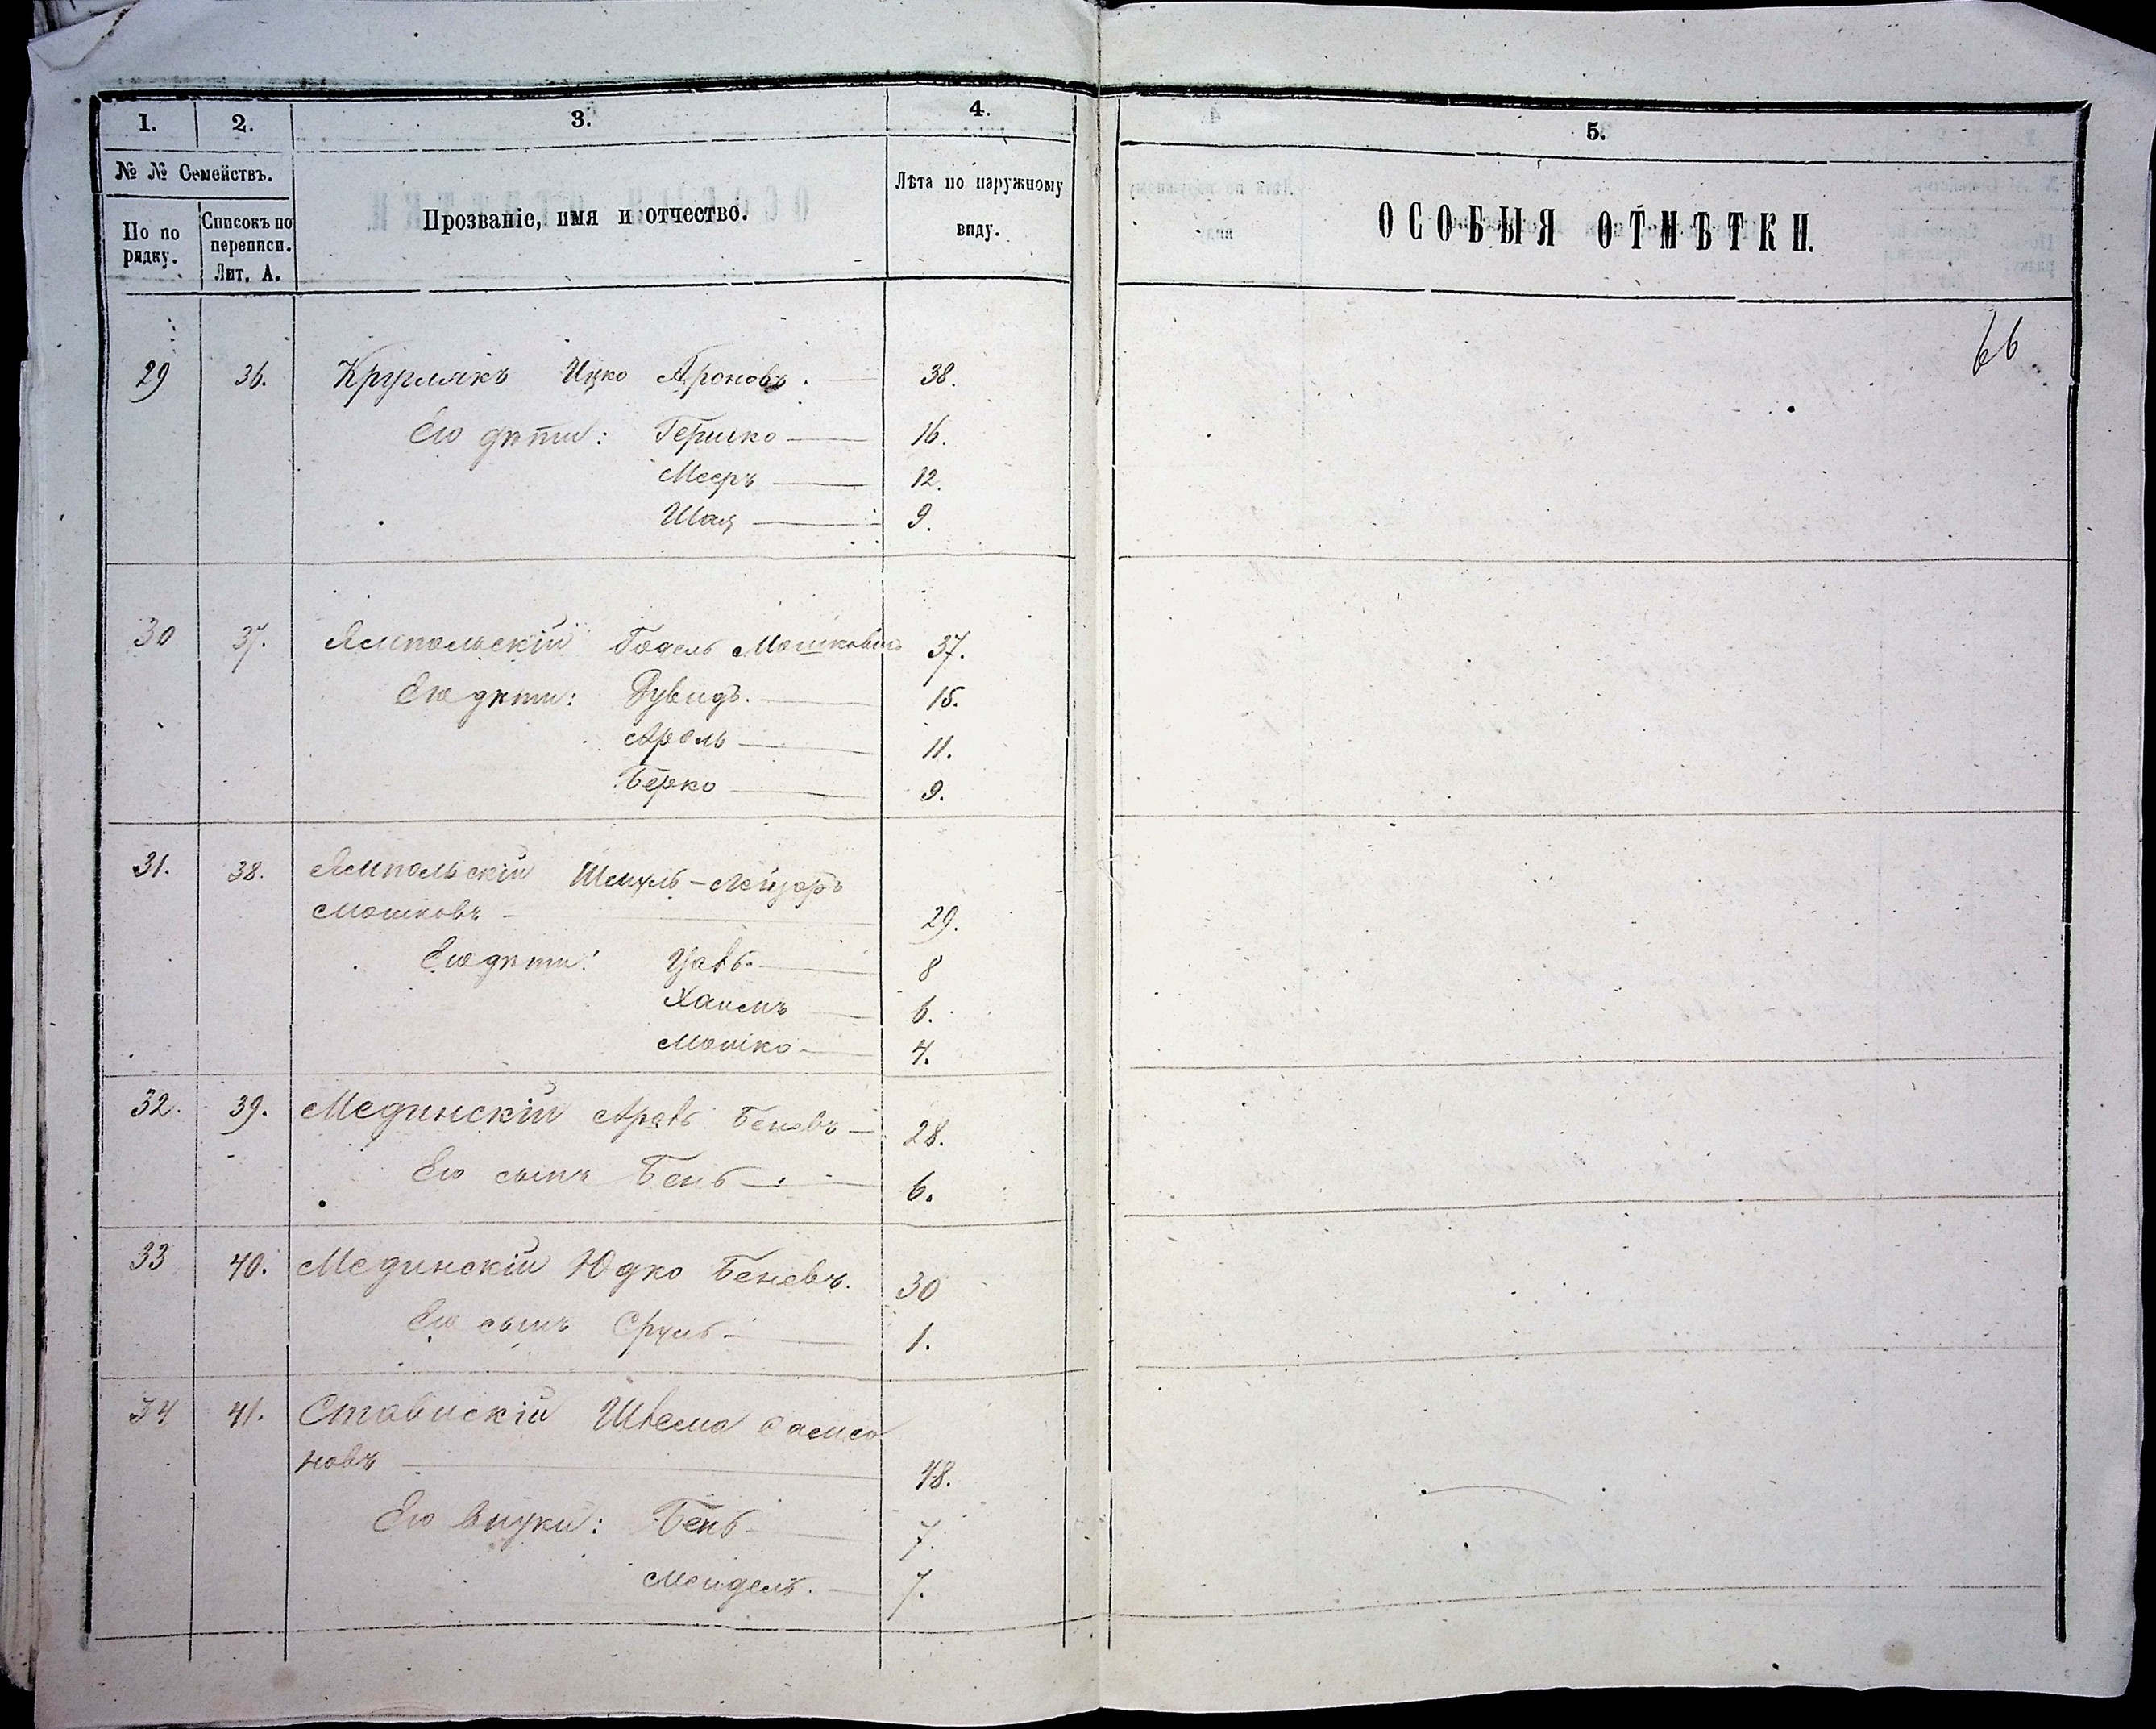 1.
2.
3.
4.
5.
№ № Семействъ.
По по рядку.
Списокъ по переписи. Лит. А.
Прозваніе, имя и отчество.
Лѣта по наружному виду.
ОСОБЫЯ ОТМѢТКИ.
66
29 36. Круглякъ Ицко Ароновъ. 38.
Его дѣти: Гершко 16.
Мееръ 12.
Шая 9.
30 37. Ямпольскій Годель Мошковъ 37.
Его дѣти: Дувидъ. 15.
Аронъ 11.
Берко 9.
31. 38. Ямпольскій Шмуль-Лейзоръ
Мошковъ 29.
Его дѣти: 8
Хаимъ 6.
Мошко 4.
32. 39. Мединскій Беневъ 28.
Его сынъ Бень 6.
33 40. Мединскій Юдко Беневъ. 30
Его сынъ Сруль 1.
34 41. Ставискій Шлема Самсо
новъ 48.
Его внуки: Бень 7.
Мендель. 7.